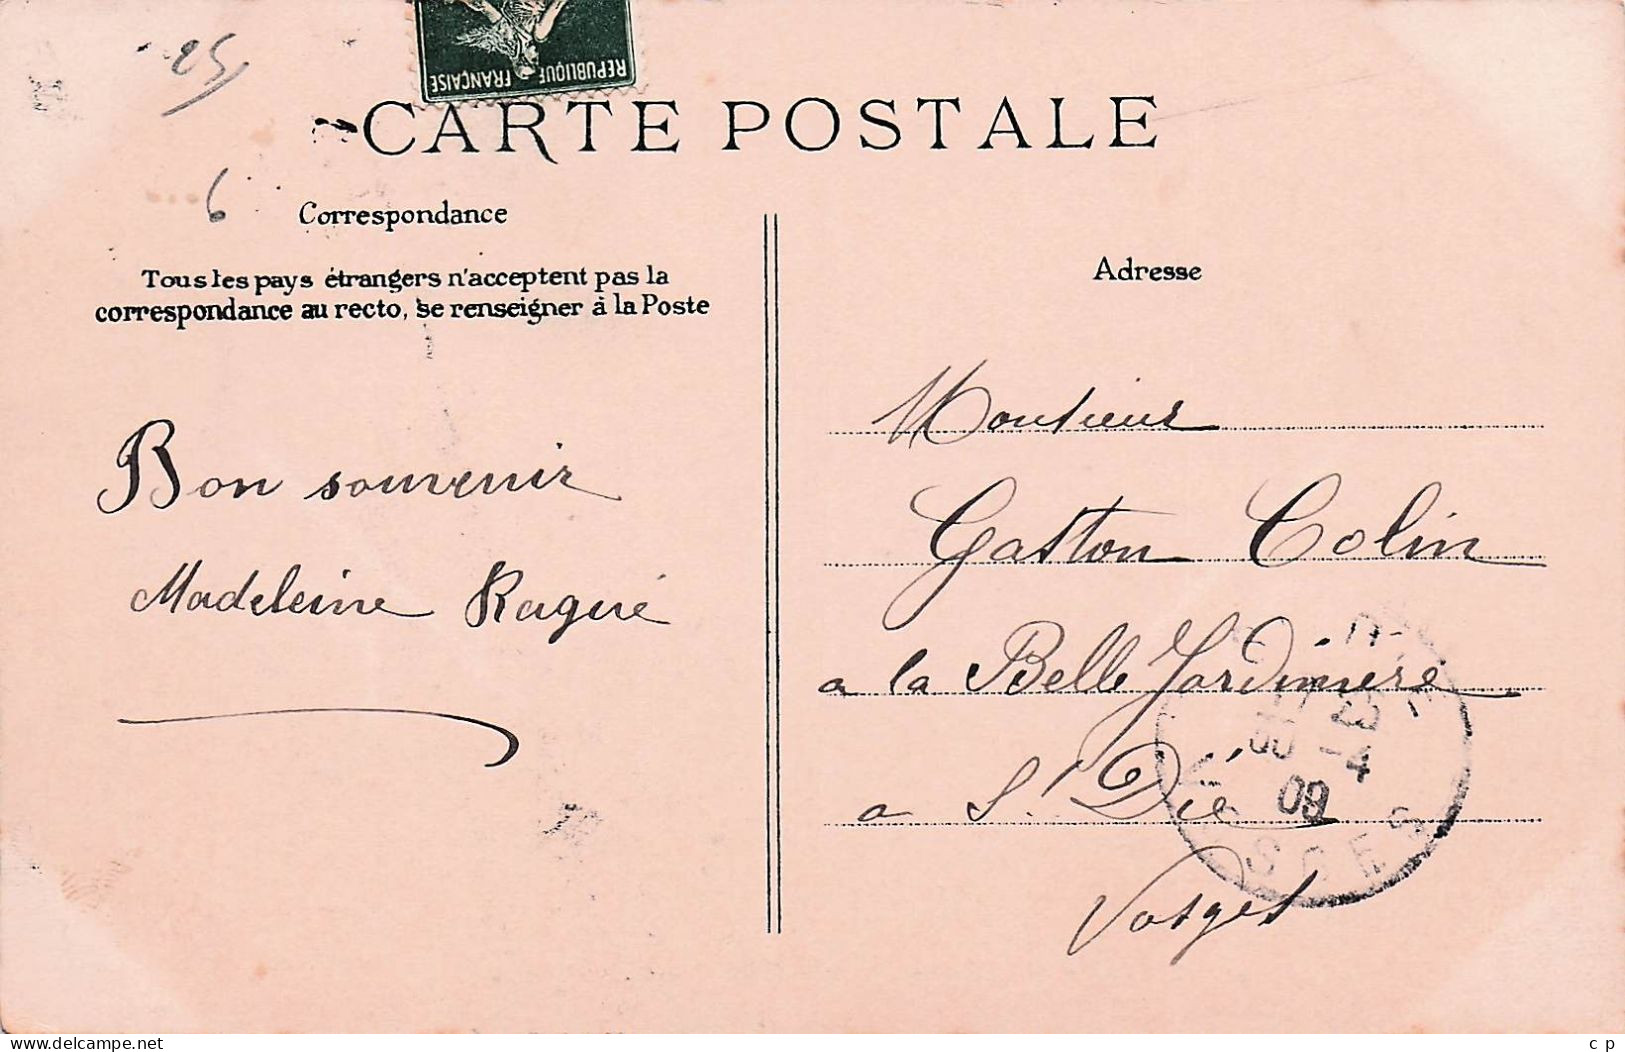 25
REPUBLIQUE FRANÇAISE
CARTE POSTALE
6
Correspondance
Tous les pays étrangers n'acceptent pas la
correspondance au recto, se renseigner à la Poste
Bon souvenir
Madeleine Ragué
Adresse
Monsieur
Gaston Colin
a la Belle Jardinière
a St Dié
Vosges
-4
09
VOSGES
www.delcampe.net
c p